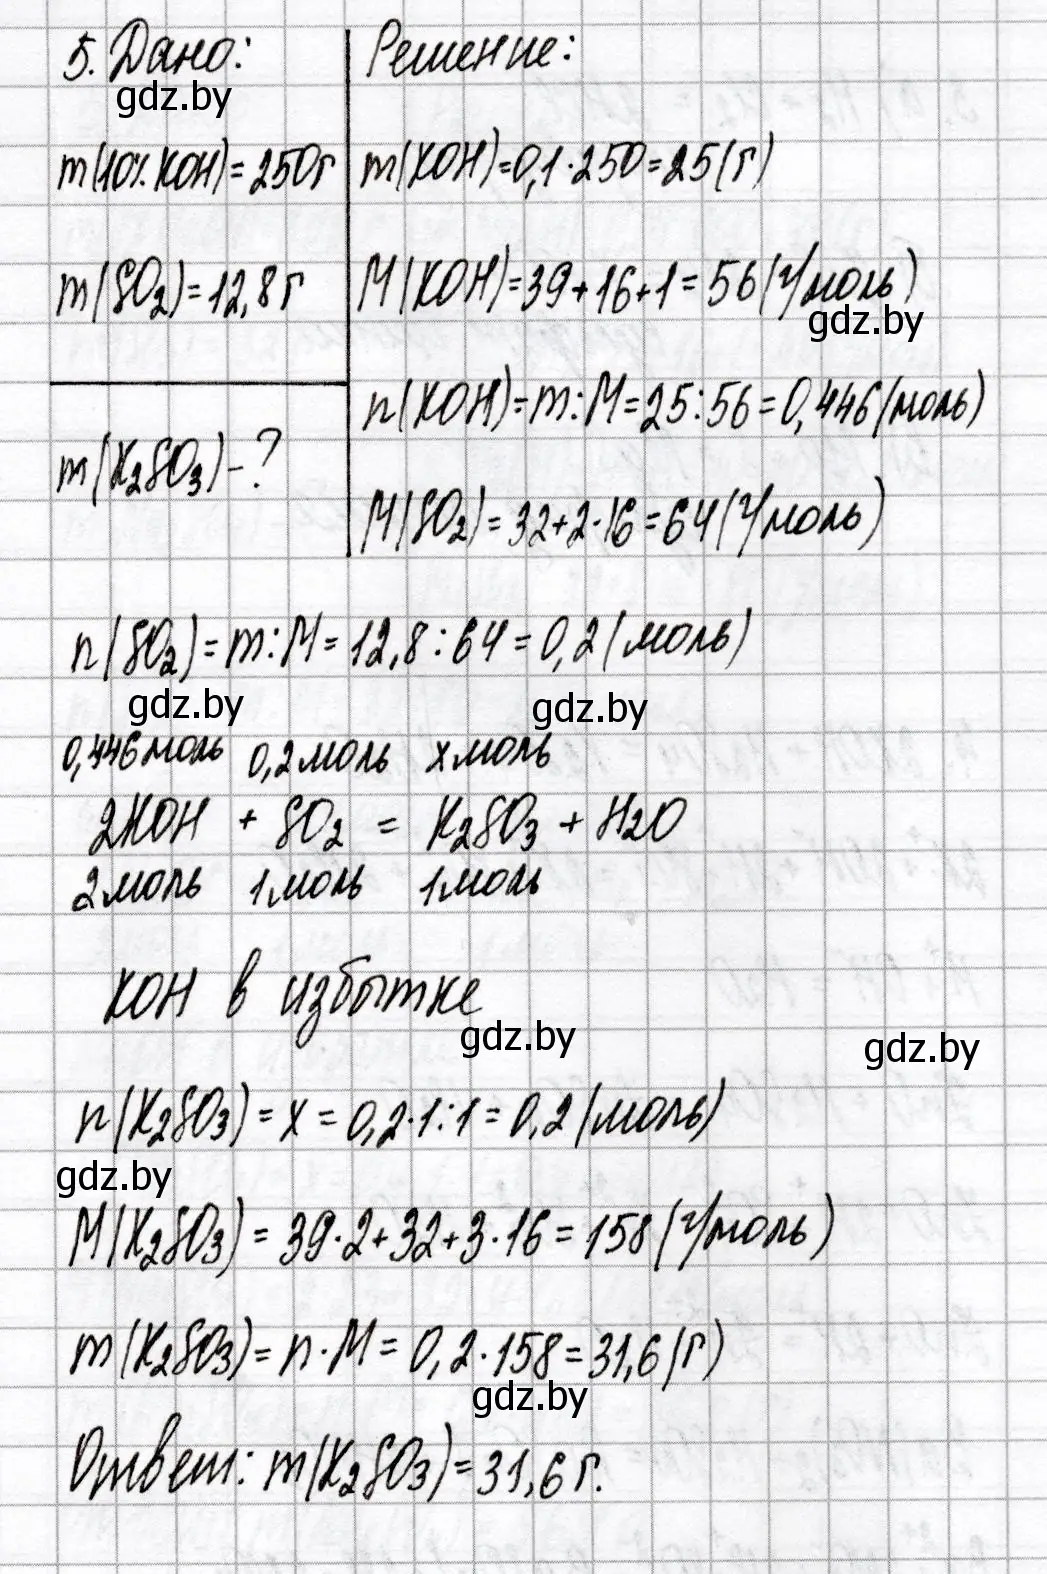 5. Дано:
gdz.by
m(10% KOH)=250г
m(SO₂)=12,8г
m(K₂SO₃)-?
Решение:
m(KOH)=0,1·250=25(г)
M(KOH)=39+16+1=56(г/моль)
gdz.by
n(KOH)=m:M=25:56=0,446(моль)
M(SO₂)=32+2·16=64(г/моль)
n(SO₂)=m:M=12,8:64=0,2(моль)
gdz.by gdz.by
0,446моль 0,2моль xмоль
2KOH + SO₂ = K₂SO₃ + H₂O
2моль 1моль 1моль
KOH в избытке
gdz.by gdz.by
n(K₂SO₃)=x=0,2·1:1=0,2(моль)
gdz.by
M(K₂SO₃)=39·2+32+3·16=158(г/моль)
m(K₂SO₃)=n·M=0,2·158=31,6(г)
gdz.by
Ответ: m(K₂SO₃)=31,6г.